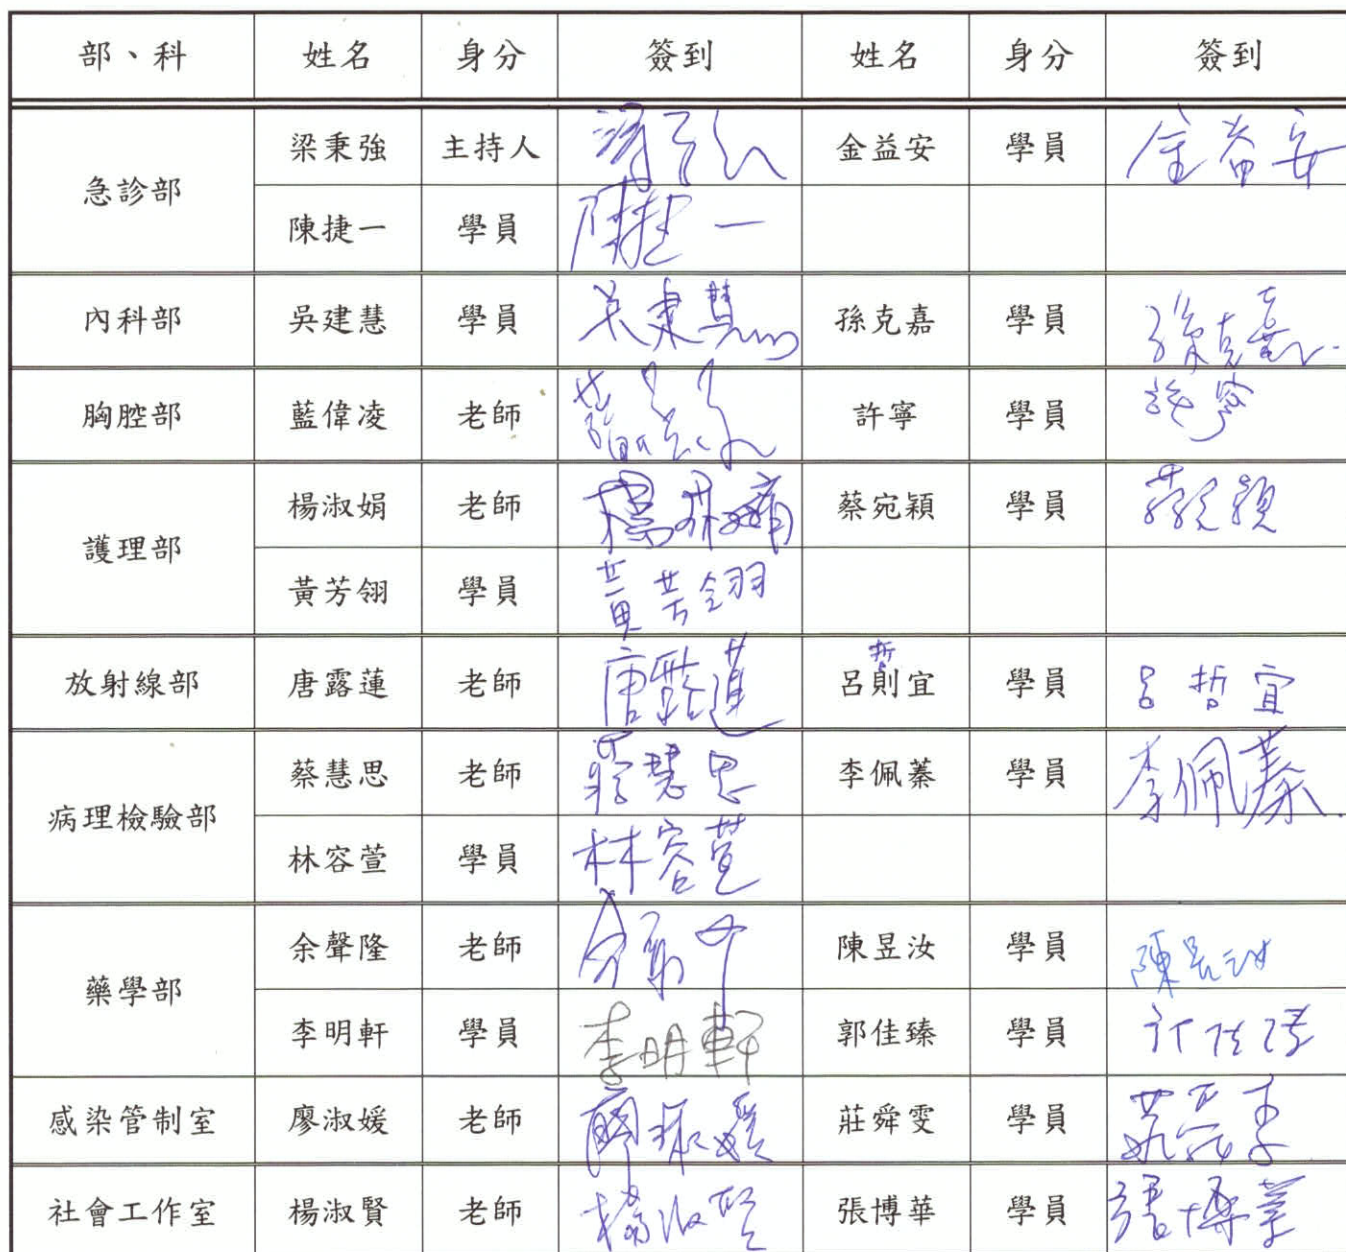 部、科 姓名 身分 簽到 姓名 身分 簽到
急診部 梁秉強 主持人 金益安 學員 金益安
陳捷一 學員 陳捷一
內科部 吳建慧 學員 吳建慧 孫克嘉 學員 孫克嘉
胸腔部 藍偉凌 老師 許寧 學員 許寧
護理部 楊淑娟 老師 楊淑娟 蔡宛穎 學員
黃芳翎 學員 黃芳翎
哲
放射線部 唐露蓮 老師 唐露蓮 呂則宜 學員 呂哲宜
病理檢驗部 蔡慧思 老師 蔡慧思 李佩蓁 學員 李佩蓁
林容萱 學員 林容萱
藥學部 余聲隆 老師 陳昱汝 學員 陳昱汝
李明軒 學員 李明軒 郭佳臻 學員
感染管制室 廖淑媛 老師 廖淑媛 莊舜雯 學員
社會工作室 楊淑賢 老師 楊淑賢 張博華 學員 張博華